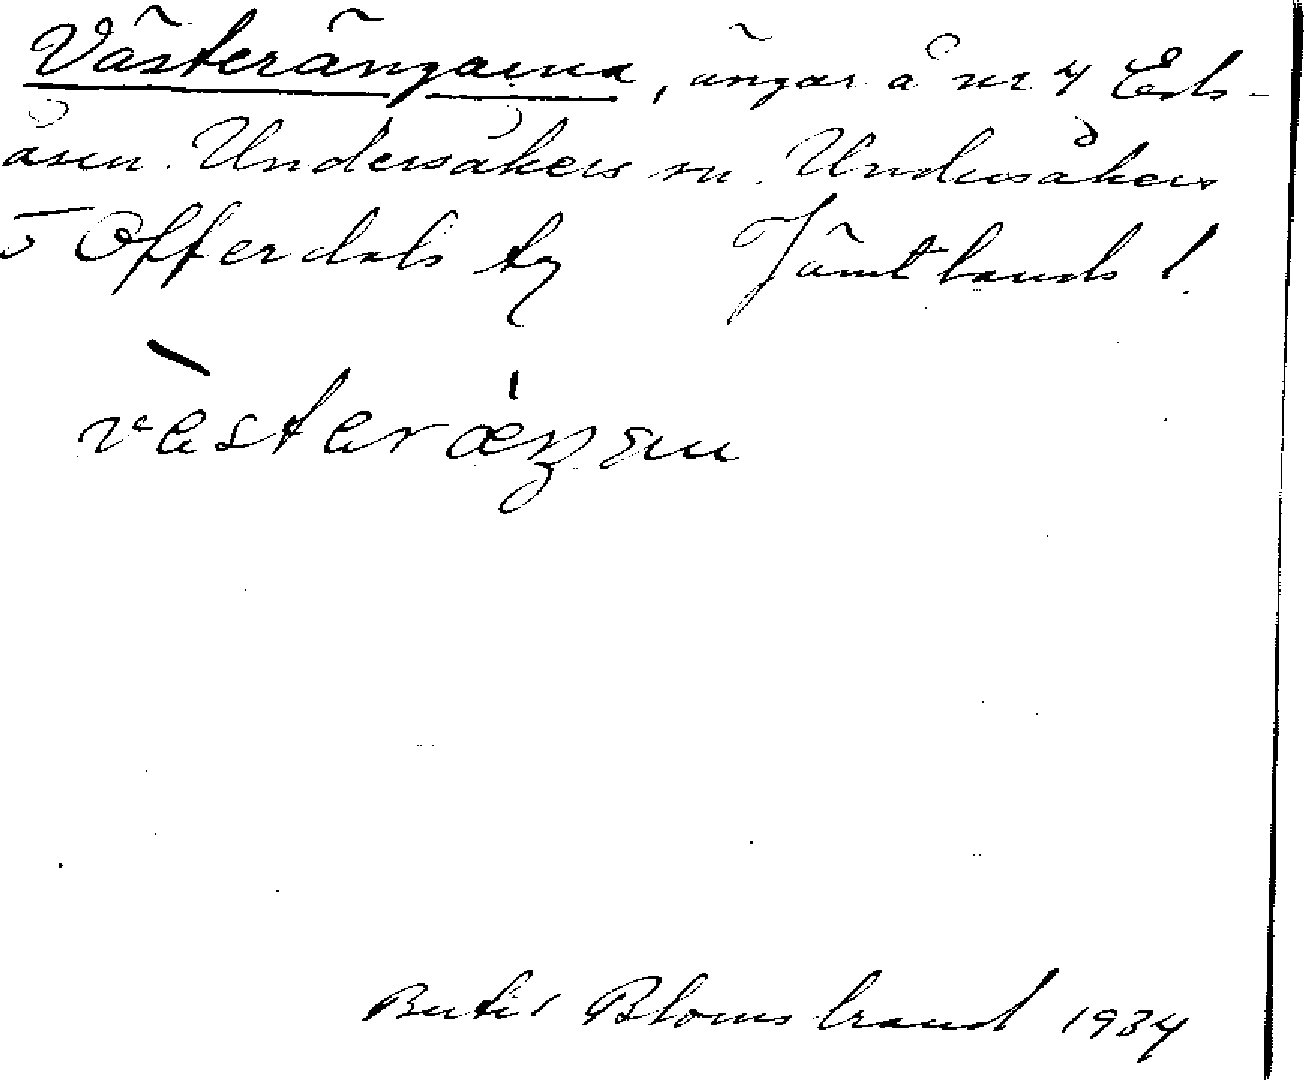 Västerängarna, ängar å nr 4 Eds-
åsen. Undersåkers sn. Undersåkers
o Offerdals tg Jämtlands l.
vesteræŋan
Bertil Blomstrand 1934